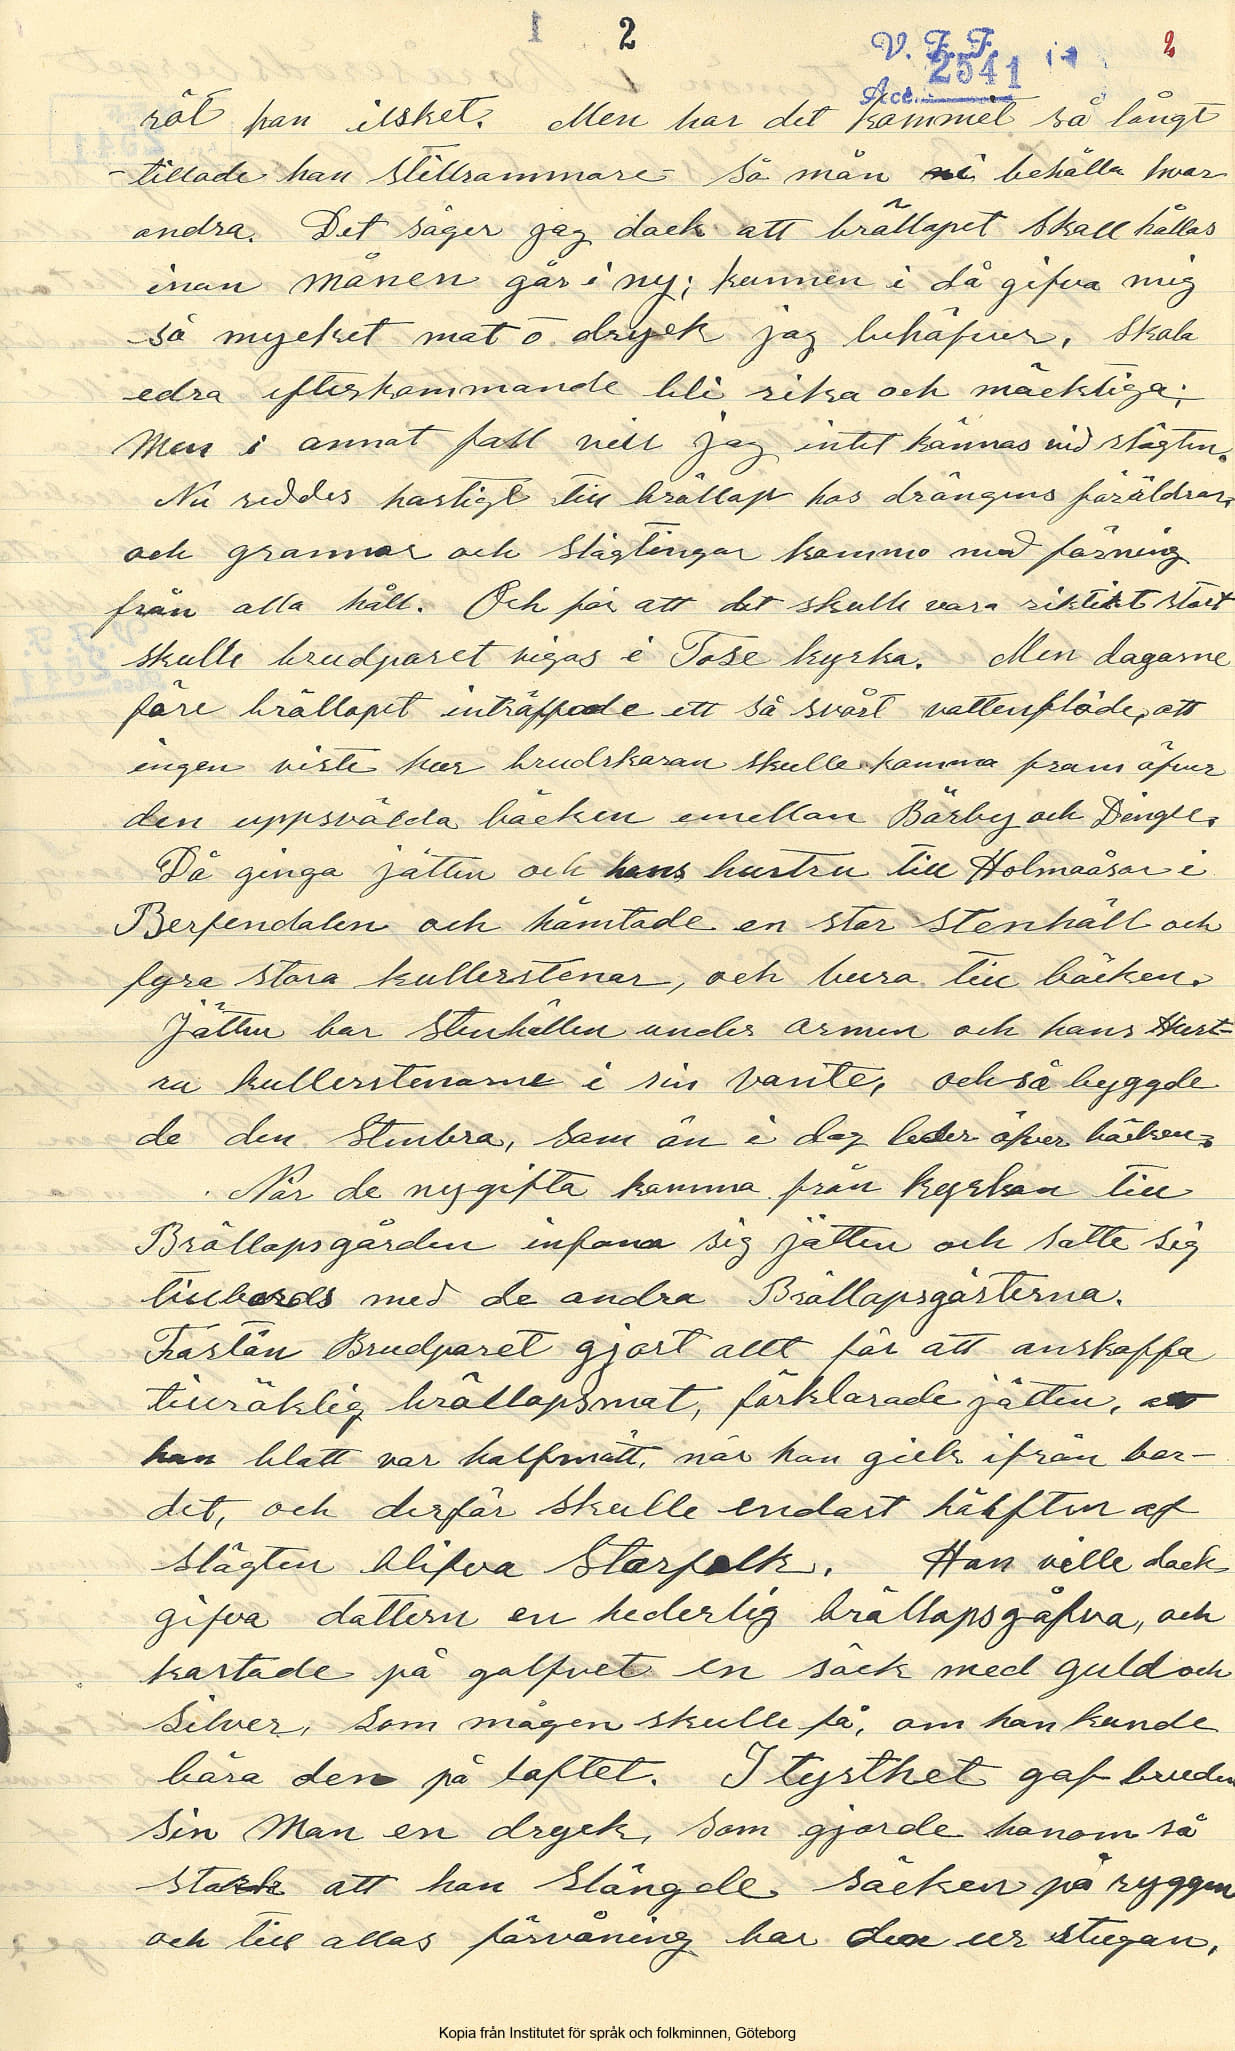 1 2 V. F. F. 2541 2
Acc.
röt han ilsket. Men har det kommit så långt
- tillade han stillsammare - så mån ni behålla hvar
andra. Det säger jag dock att bröllopet skall hållas
inan månen går i ny; kunnen i då gifva mig
så mycket mat o dryck jag behöfver, skola
edra efterkommande bli rika och mäcktiga;
Men i annat fall vill jag intet kännas vid slägten.
Nu reddes hastigt till bröllop hos drängens föräldrar,
och grannar och slägtingar kommo med förning
från alla håll. Och för att det skulle vara riktigt stort
skulle brudparet vigas i Tose kyrka. Men dagarne
före bröllopet inträffade ett så svårt vattenflöde, att
ingen viste hur brudskaran skulle komma fram öfver
den uppsvälda bäcken emellan Bärby och Dingle.
Då ginga jätten och hans hustru till Holmaåsar i
Berfendalen och hämtade en stor stenhäll och
fyra stora kullerstenar, och buro till bäcken.
Jätten bar stenhällen under armen och hans Hust-
ru kullerstenarne i sin vante, och så byggde
de den stenbro, som än i dag leder öfver bäcken.
När de nygifta komma från kyrkan till
Bröllopsgården infann sig jätten och satte sig
till bords med de andra Bröllopsgästerna.
Fastän Brudparet gjort allt för att anskaffa
tillräklig bröllopsmat, förklarade jätten, att
han blott var halfmätt, när han gick ifrån bor-
det, och derför skulle endast hälften af
slägten blifva Storfolk. Han ville dock
gifva dattern en hederlig bröllopsgåfva, och
kastade på golfvet en säck med guld och
silver, som mågen skulle få, om han kunde
bära den på loftet. I tysthet gaf bruden
sin Man en dryck, som gjorde honom så
stark att han slängde säcken på ryggen
och till allas förvåning bar den ur stugan,
Kopia från Institutet för språk och folkminnen, Göteborg